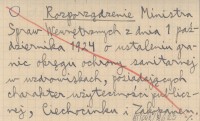 O Rozporządzenie Ministra
Spraw Wewnętrznych z dnia 1 paź-
dziernika 1924 o ustaleniu gra-
nic okręgu ochrony sanitarnej
w uzdrowiskach, posiadających
charakter użyteczności publicz-
nej, Ciechocinku i Zakopanem.